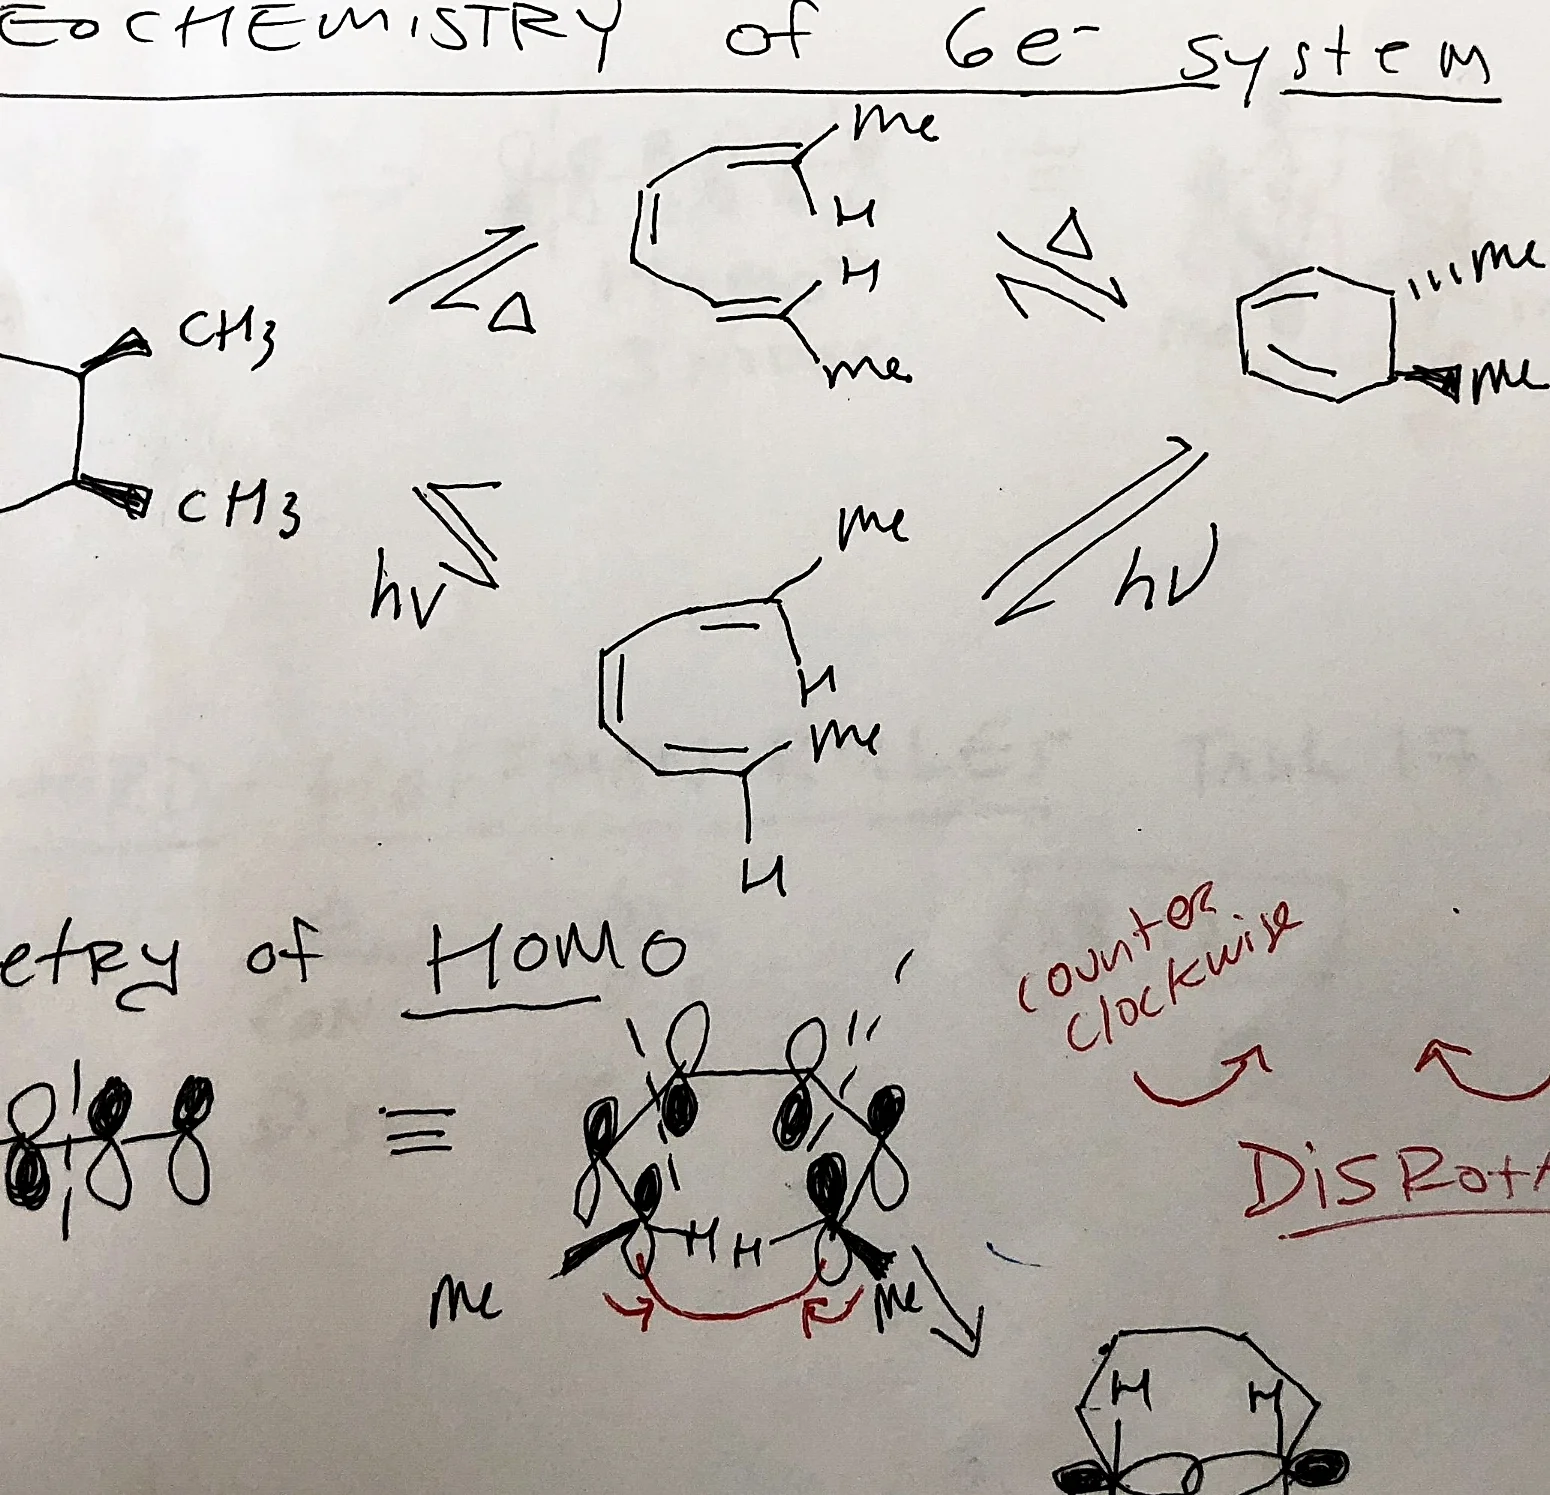 EOCHEMISTRY of 6e- system
Me
H
H
Me
Δ
Δ
Me
Me
CH3
CH3
hν
hν
Me
H
Me
H
etRy of HOMO
counter
clockwise
DisRotA
Me
H H
Me
H H